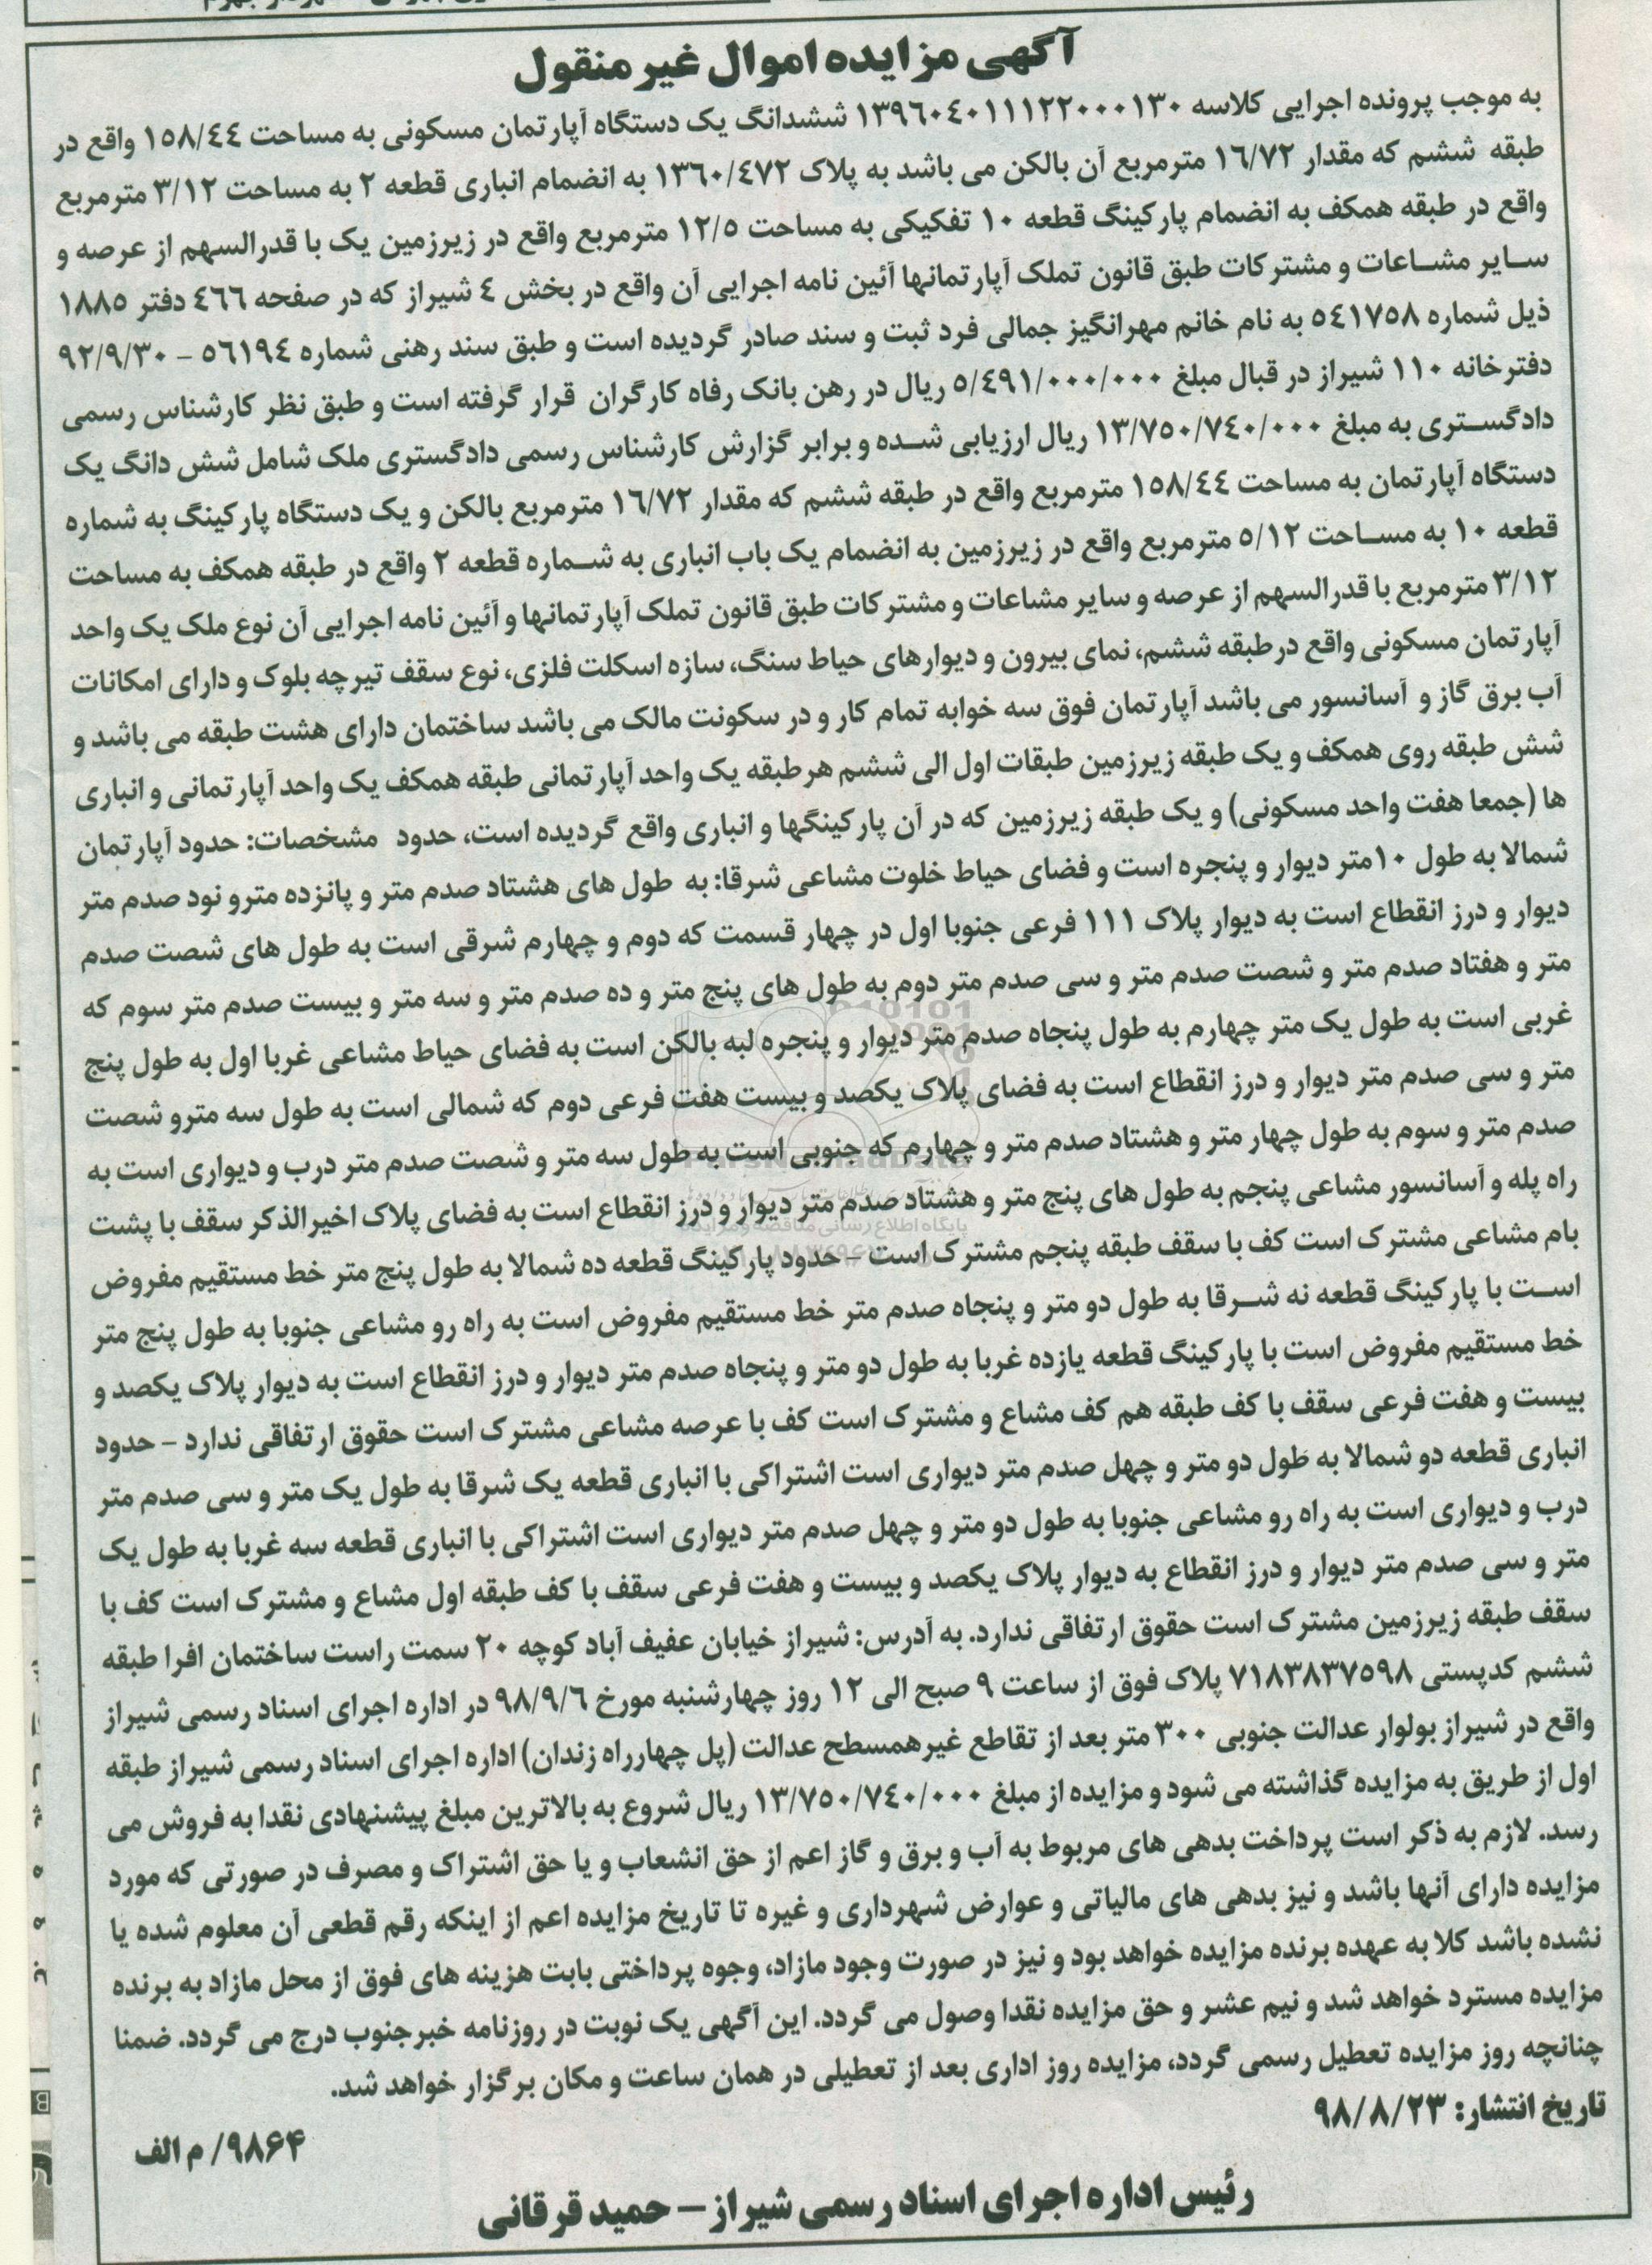 آگهی مزایده اموال غیر منقول
به موجب پرونده اجرایی کلاسه ۱۳۹۶۰۴۰۱۱۱۲۲۰۰۰۱۳۰ ششدانگ یک دستگاه آپارتمان مسکونی به مساحت ۱۵۸/۴۴ واقع در
طبقه ششم که مقدار ۱۶/۷۲ مترمربع آن بالکن می باشد به پلاک ۱۳۶۰/۴۷۲ به انضمام انباری قطعه ۲ به مساحت ۳/۱۲ مترمربع
واقع در طبقه همکف به انضمام پارکینگ قطعه ۱۰ تفکیکی به مساحت ۱۲/۵ مترمربع واقع در زیرزمین یک با قدرالسهم از عرصه و
سایر مشاعات و مشترکات طبق قانون تملک آپارتمانها آئین نامه اجرایی آن واقع در بخش ۴ شیراز که در صفحه ۴۶۶ دفتر ۱۸۸۵
ذیل شماره ۵۴۱۷۵۸ به نام خانم مهرانگیز جمالی فرد ثبت و سند صادر گردیده است و طبق سند رهنی شماره ۵۶۱۹۴ – ۹۲/۹/۳۰
دفترخانه ۱۱۰ شیراز در قبال مبلغ ۵/۴۹۱/۰۰۰/۰۰۰ ریال در رهن بانک رفاه کارگران قرار گرفته است و طبق نظر کارشناس رسمی
دادگستری به مبلغ ۱۳/۷۵۰/۷۴۰/۰۰۰ ریال ارزیابی شده و برابر گزارش کارشناس رسمی دادگستری ملک شامل شش دانگ یک
دستگاه آپارتمان به مساحت ۱۵۸/۴۴ مترمربع واقع در طبقه ششم که مقدار ۱۶/۷۲ مترمربع بالکن و یک دستگاه پارکینگ به شماره
قطعه ۱۰ به مساحت ۵/۱۲ مترمربع واقع در زیرزمین به انضمام یک باب انباری به شماره قطعه ۲ واقع در طبقه همکف به مساحت
۳/۱۲ مترمربع با قدرالسهم از عرصه و سایر مشاعات و مشترکات طبق قانون تملک آپارتمانها و آئین نامه اجرایی آن نوع ملک یک واحد
آپارتمان مسکونی واقع در طبقه ششم، نمای بیرون و دیوارهای حیاط سنگ، سازه اسکلت فلزی، نوع سقف تیرچه بلوک و دارای امکانات
آب برق گاز و آسانسور می باشد آپارتمان فوق سه خوابه تمام کار و در سکونت مالک می باشد ساختمان دارای هشت طبقه می باشد و
شش طبقه روی همکف و یک طبقه زیرزمین طبقات اول الی ششم هرطبقه یک واحد آپارتمانی طبقه همکف یک واحد آپارتمانی و انباری
ها (جمعا هفت واحد مسکونی) و یک طبقه زیرزمین که در آن پارکینگها و انباری واقع گردیده است، حدود مشخصات: حدود آپارتمان
شمالا به طول ۱۰متر دیوار و پنجره است و فضای حیاط خلوت مشاعی شرقا: به طول های هشتاد صدم متر و پانزده مترو نود صدم متر
دیوار و درز انقطاع است به دیوار پلاک ۱۱۱ فرعی جنوبا اول در چهار قسمت که دوم و چهارم شرقی است به طول های شصت صدم
متر و هفتاد صدم متر و شصت صدم متر و سی صدم متر دوم به طول های پنج متر و ده صدم متر و سه متر و بیست صدم متر سوم که
غربی است به طول یک متر چهارم به طول پنجاه صدم متر دیوار و پنجره لبه بالکن است به فضای حیاط مشاعی غربا اول به طول پنج
متر و سی صدم متر دیوار و درز انقطاع است به فضای پلاک یکصد و بیست هفت فرعی دوم که شمالی است به طول سه مترو شصت
صدم متر و سوم به طول چهار متر و هشتاد صدم متر و چهارم که جنوبی است به طول سه متر و شصت صدم متر درب و دیواری است به
راه پله و آسانسور مشاعی پنجم به طول های پنج متر و هشتاد صدم متر دیوار و درز انقطاع است به فضای پلاک اخیرالذکر سقف با پشت
بام مشاعی مشترک است کف با سقف طبقه پنجم مشترک است – حدود پارکینگ قطعه ده شمالا به طول پنج متر خط مستقیم مفروض
است با پارکینگ قطعه نه شرقا به طول دو متر و پنجاه صدم متر خط مستقیم مفروض است به راه رو مشاعی جنوبا به طول پنج متر
خط مستقیم مفروض است با پارکینگ قطعه یازده غربا به طول دو متر و پنجاه صدم متر دیوار و درز انقطاع است به دیوار پلاک یکصد و
بیست و هفت فرعی سقف با کف طبقه هم کف مشاع و مشترک است کف با عرصه مشاعی مشترک است حقوق ارتفاقی ندارد – حدود
انباری قطعه دو شمالا به طول دو متر و چهل صدم متر دیواری است اشتراکی با انباری قطعه یک شرقا به طول یک متر و سی صدم متر
درب و دیواری است به راه رو مشاعی جنوبا به طول دو متر و چهل صدم متر دیواری است اشتراکی با انباری قطعه سه غربا به طول یک
متر و سی صدم متر دیوار و درز انقطاع به دیوار پلاک یکصد و بیست و هفت فرعی سقف با کف طبقه اول مشاع و مشترک است کف با
سقف طبقه زیرزمین مشترک است حقوق ارتفاقی ندارد. به آدرس: شیراز خیابان عفیف آباد کوچه ۲۰ سمت راست ساختمان افرا طبقه
ششم کدپستی ۷۱۸۳۸۳۷۵۹۸ پلاک فوق از ساعت ۹ صبح الی ۱۲ روز چهارشنبه مورخ ۹۸/۹/۶ در اداره اجرای اسناد رسمی شیراز
واقع در شیراز بولوار عدالت جنوبی ۳۰۰ متر بعد از تقاطع غیرهمسطح عدالت (پل چهارراه زندان) اداره اجرای اسناد رسمی شیراز طبقه
اول از طریق به مزایده گذاشته می شود و مزایده از مبلغ ۱۳/۷۵۰/۷۴۰/۰۰۰ ریال شروع به بالاترین مبلغ پیشنهادی نقدا به فروش می
رسد. لازم به ذکر است پرداخت بدهی های مربوط به آب و برق و گاز اعم از حق انشعاب و یا حق اشتراک و مصرف در صورتی که مورد
مزایده دارای آنها باشد و نیز بدهی های مالیاتی و عوارض شهرداری و غیره تا تاریخ مزایده اعم از اینکه رقم قطعی آن معلوم شده یا
نشده باشد کلا به عهده برنده مزایده خواهد بود و نیز در صورت وجود مازاد، وجوه پرداختی بابت هزینه های فوق از محل مازاد به برنده
مزایده مسترد خواهد شد و نیم عشر و حق مزایده نقدا وصول می گردد. این آگهی یک نوبت در روزنامه خبرجنوب درج می گردد. ضمنا
چنانچه روز مزایده تعطیل رسمی گردد، مزایده روز اداری بعد از تعطیلی در همان ساعت و مکان برگزار خواهد شد.
تاریخ انتشار: ۹۸/۸/۲۳
۹۸۶۴/ م الف
رئیس اداره اجرای اسناد رسمی شیراز – حمید قرقانی